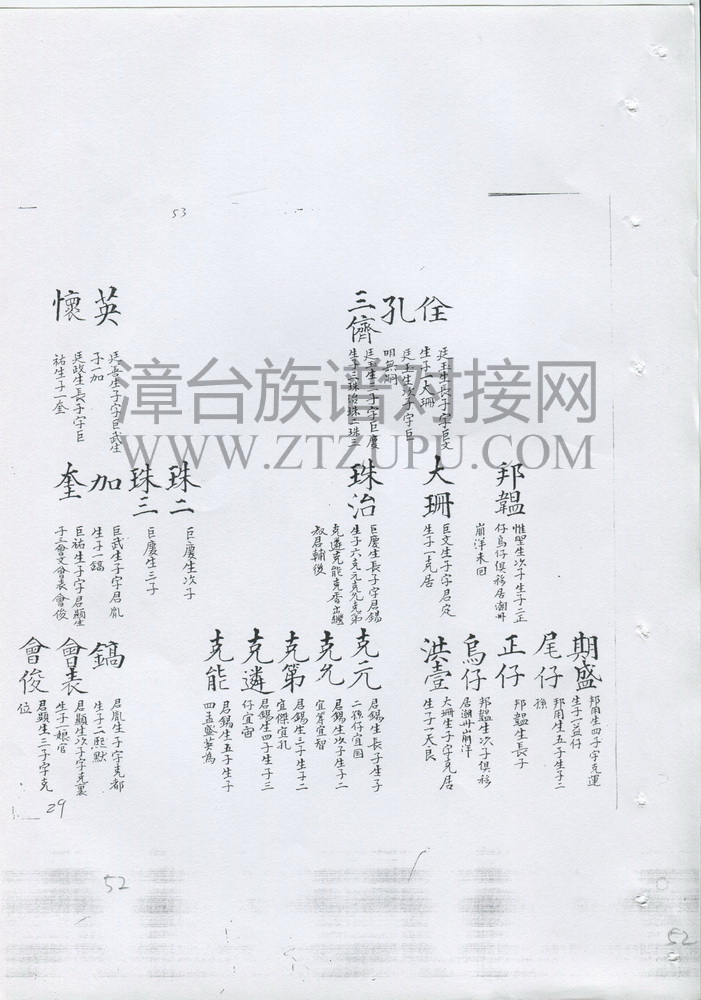 53
佺
廷玉生長子字巨文
生子一大珊
孔
廷玉生次子字巨
明無嗣
三儕
廷玉生三子字巨慶
生子三珠治珠二珠三
英
廷吾生子字巨武生
子一加
懷
廷政生長子字巨
祐生子一奎
漳台族谱对接网
WWW.ZTZUPU.COM
邦韞
惟聖生次子生子二正
仔烏仔俱移居潮州
崩洋未回
大珊
巨文生子字君定
生子一克居
珠治
巨慶生長子字君錫
生子六克元克允克第
克遴克能克香出繼
叔君輔後
珠二
巨慶生次子
珠三
巨慶生三子
加
巨武生子字君胤
生子一鎬
奎
巨祐生子字君顯生
子三會文會表會俊
期盛
邦用生四子字克運
生子一益仔
尾仔
邦用生五子生子二
孫
正仔
邦韞生長子
烏仔
邦韞生次子俱移
居潮州崩洋
洪壹
大珊生子字克居
生子一天良
克元
君錫生長子生子
二孫仔宜園
克允
君錫生次子生子二
宜篤宜智
克第
君錫生三子生子二
宜傑宜孔
克遴
君錫生四子生子三
仔宜宙
克能
君錫生五子生子
四孟盛
鎬
君胤生子字克都
生子二熙默
會表
君顯生次子字克裏
生子一娘官
會俊
君顯生三子字克
位
29
52
52